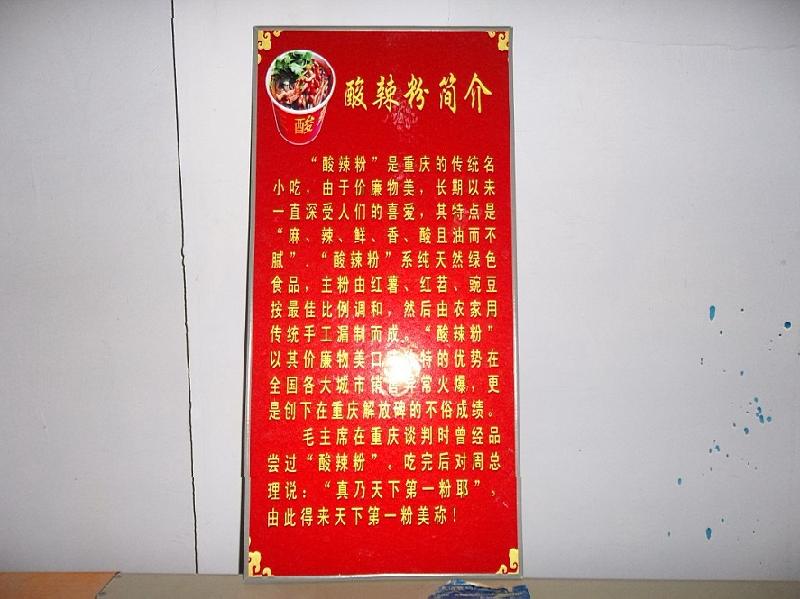 酸
酸辣粉简介
“酸辣粉”是重庆的传统名
小吃，由于价廉物美，长期以来
一直深受人们的喜爱，其特点是
“麻、辣、鲜、香、酸且油而不
腻”．“酸辣粉”系纯天然绿色
食品，主粉由红薯、红苕、豌豆
按最佳比例调和，然后由农家用
传统手工漏制而成。“酸辣粉”
以其价廉物美口 特的优势在
全国各大城市销售异常火爆，更
是创下在重庆解放碑的不俗成绩。
毛主席在重庆谈判时曾经品
尝过“酸辣粉”，吃完后对周总
理说：“真乃天下第一粉耶”，
由此得来天下第一粉美称！